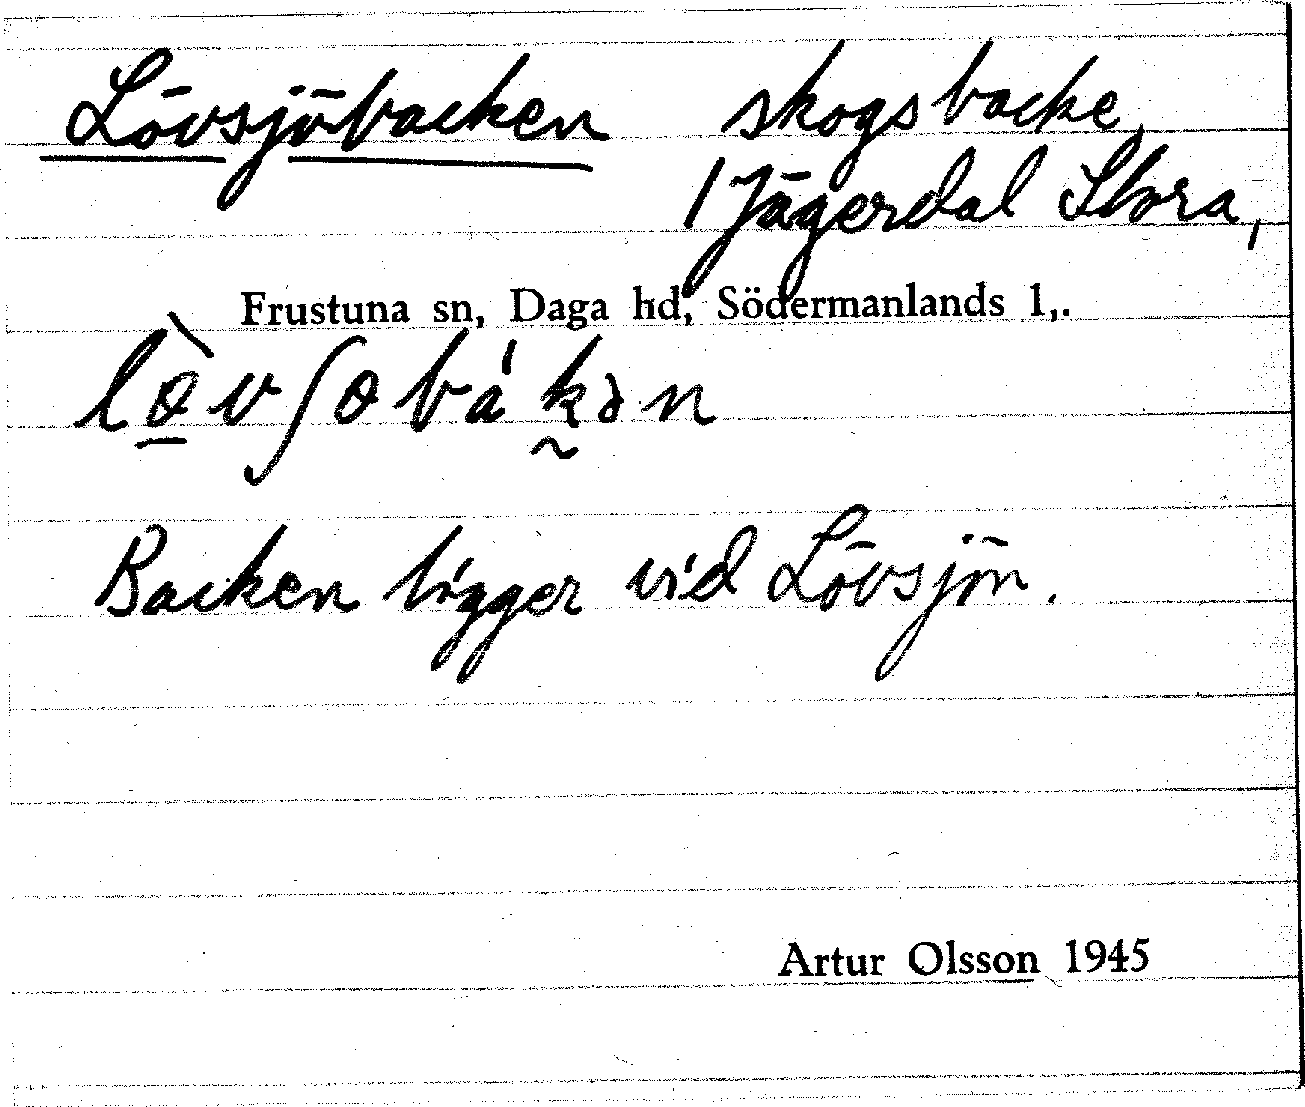 Lövsjöbacken skogsbacke,
/ Jägerdal Stora,
Frustuna sn, Daga hd, Södermanlands l,.
lɵ̀vʃɵbákən
Backen ligger vid Lövsjön.
Artur Olsson 1945